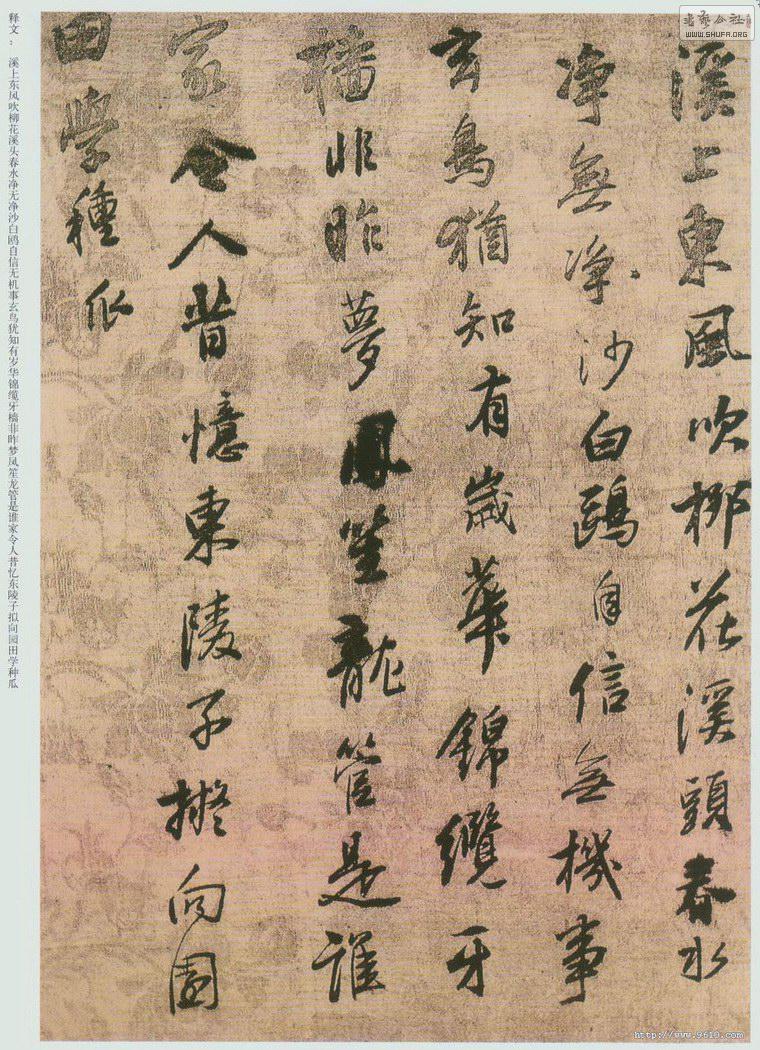 書藝公社
WWW.SHUFA.ORG
溪上東風吹柳花溪頭春水
淨無淨沙白鷗自信無機事
玄鳥猶知有歲華錦纜牙
檣非昨夢鳳笙龍管是誰
家令人昔憶東陵子擬向園
田學種瓜
释文： 溪上东风吹柳花溪头春水净无净沙白鸥自信无机事玄鸟犹知有岁华锦缆牙樯非昨梦凤笙龙管是谁家令人昔忆东陵子拟向园田学种瓜
http://www.9610.com